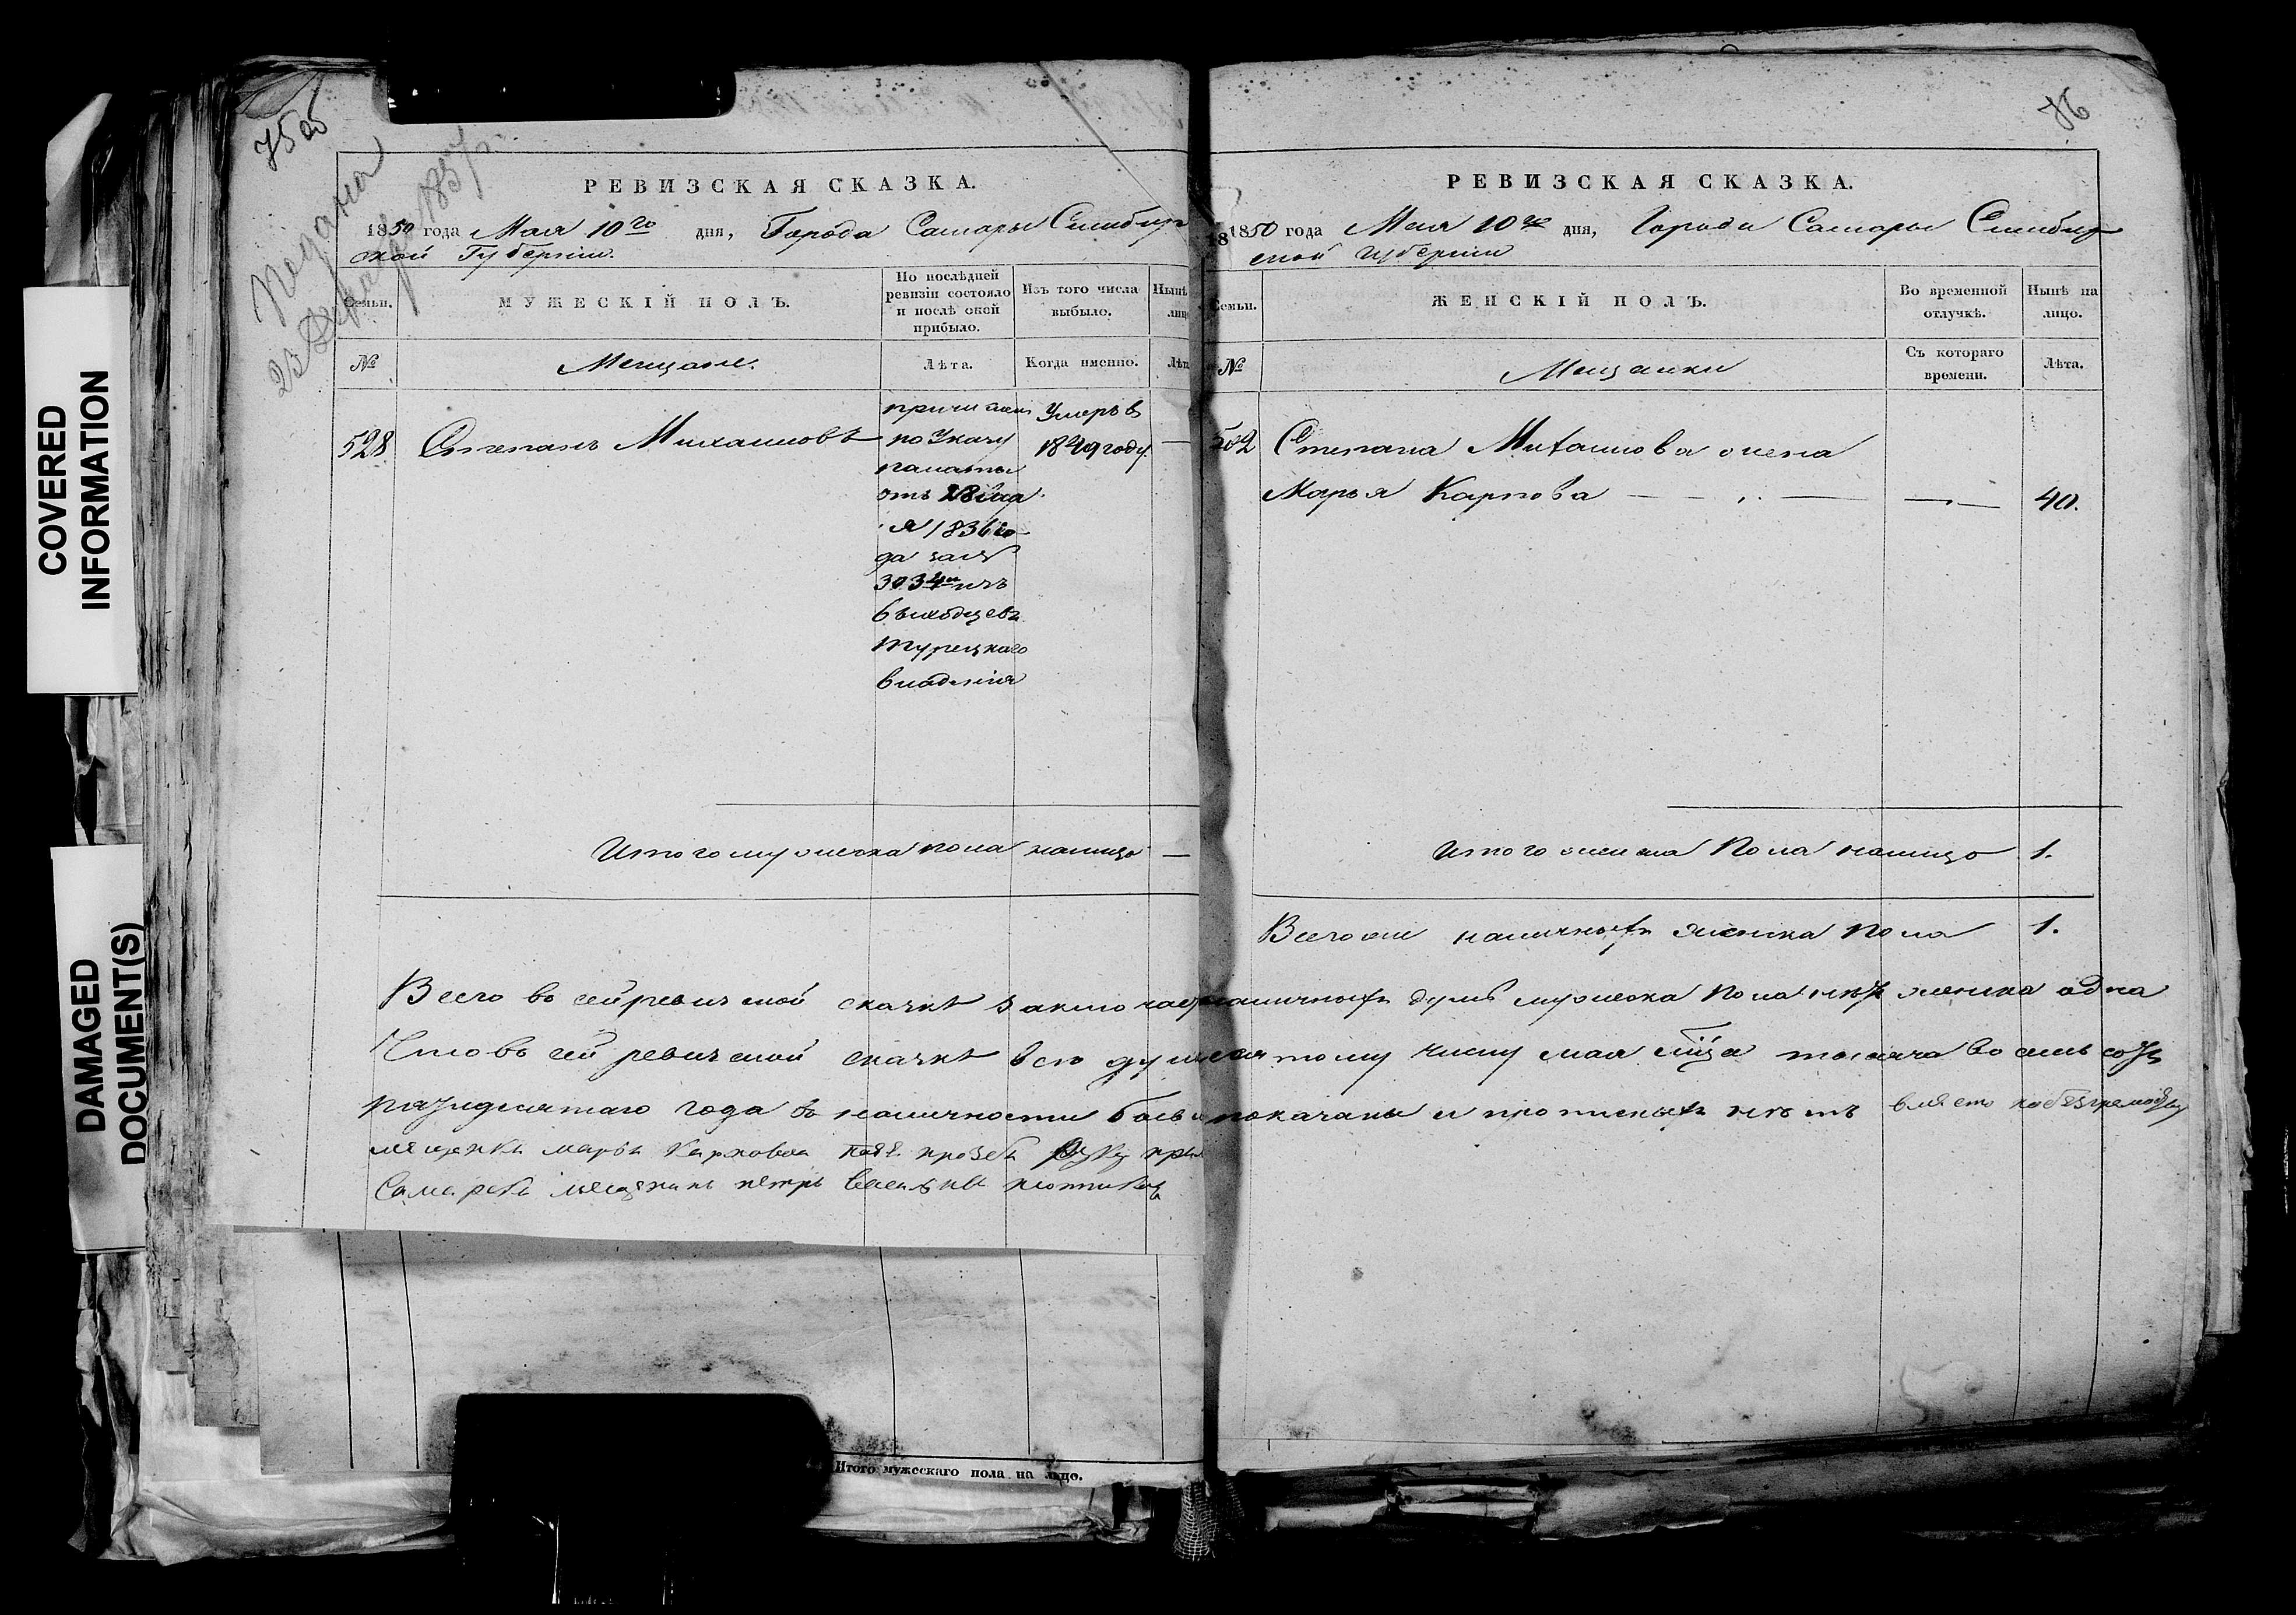 COVERED
INFORMATION
DAMAGED
DOCUMENT(S)
75 об
Подана
23 1857
РЕВИЗСКАЯ СКАЗКА.
1850 года Мая 10го дня, Города Самары Симбир
ской Губерніи.
Семьи.
МУЖЕСКІЙ ПОЛЪ.
По послѣдней
ревизіи состояло
и послѣ оной
прибыло.
Изъ того числа
выбыло.
Нынѣ
лиц
№
Мещане.
Лѣта.
Когда именно.
Лѣт
528
Степанъ Михаиловъ
причислен
по Указу
палаты
отъ 28 ма
я 1836 го
да за №
3034м изъ
выходцевъ
турецкаго
владенія
Умеръ в
1849 году
—
Итого мужеска пола налицо —
76
РЕВИЗСКАЯ СКАЗКА.
1850 года Мая 10го дня, Города Самары Симбир
ской Губерніи
Семьи.
ЖЕНСКІЙ ПОЛЪ.
Во временной
отлучкѣ.
Нынѣ на
лицо.
№
Мещанки
Съ котораго
времени.
Лѣта.
Степана Михаилова жена
Марья Карпова — — — 40.
Итого женска Пола налицо 1.
наличныхъ женска пола 1.
Всего въ сей ревизской сказкѣ наличныхъ душъ мужеска пола нѣтъ женска одна
Что въ сей ревизской сказкѣ всѣ души тому числу мая м͠ца тысяча восемь сотъ
пятидесятаго года въ наличности показаны и прописныхъ нѣтъ вместо
мещанки марьи Карповой руку
мещанинъ петръ
Итого мужескаго пола на лицо.